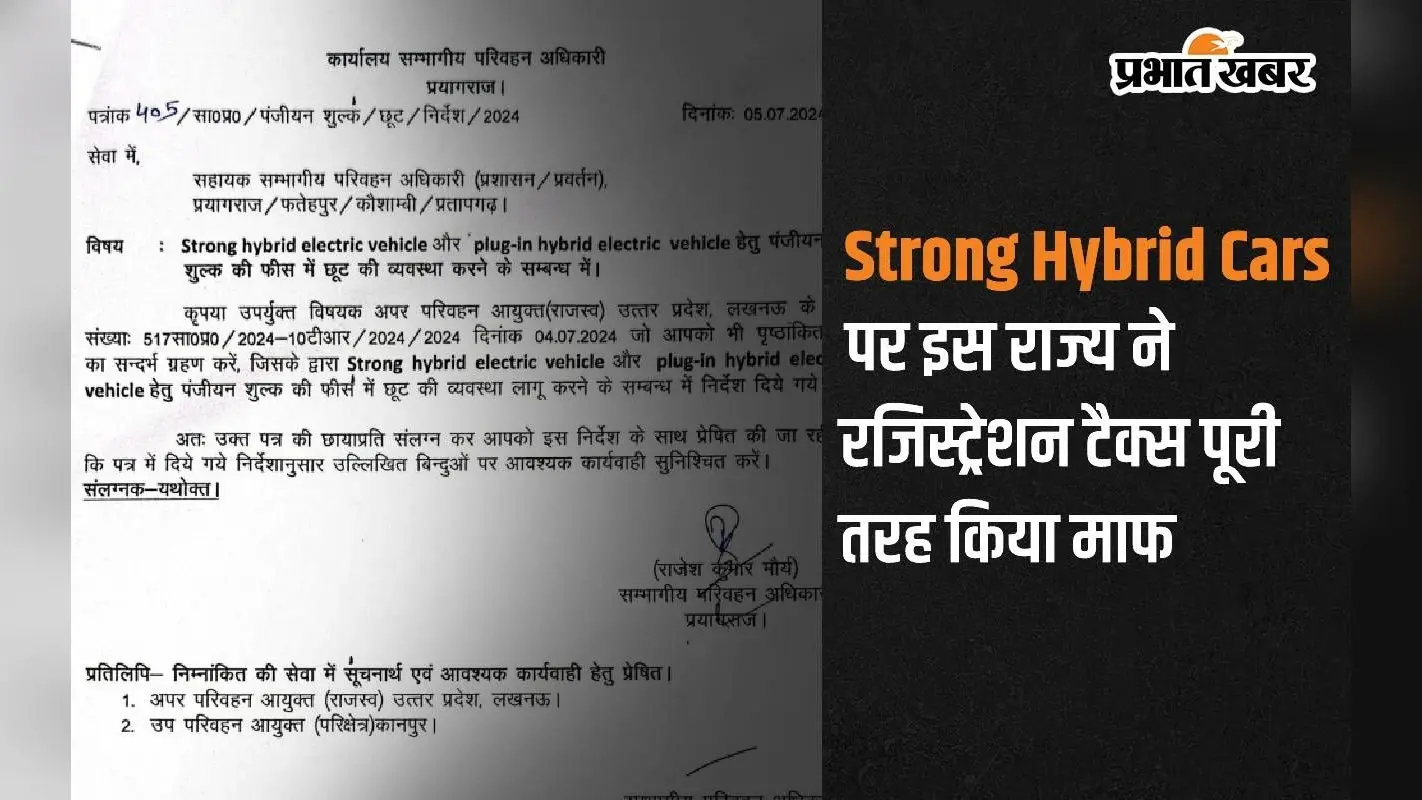 कार्यालय सम्भागीय परिवहन अधिकारी
प्रयागराज।
पत्रांक 405/सा0प्र0/पंजीयन शुल्क/छूट/निर्देश/2024 दिनांकः 05.07.2024
सेवा में,
सहायक सम्भागीय परिवहन अधिकारी (प्रशासन/प्रवर्तन),
प्रयागराज/फतेहपुर/कौशाम्बी/प्रतापगढ़।
विषय : Strong hybrid electric vehicle और 'plug-in hybrid electric vehicle हेतु पंजीयन
शुल्क की फीस में छूट की व्यवस्था करने के सम्बन्ध में।
कृपया उपर्युक्त विषयक अपर परिवहन आयुक्त(राजस्व) उत्तर प्रदेश, लखनऊ के
संख्याः 517सा0प्र0/2024-10टीआर/2024/2024 दिनांक 04.07.2024 जो आपको भी पृष्ठांकित
का सन्दर्भ ग्रहण करें, जिसके द्वारा Strong hybrid electric vehicle और plug-in hybrid elec
vehicle हेतु पंजीयन शुल्क की फीस में छूट की व्यवस्था लागू करने के सम्बन्ध में निर्देश दिये गये
अतः उक्त पत्र की छायाप्रति संलग्न कर आपको इस निर्देश के साथ प्रेषित की जा रही
कि पत्र में दिये गये निर्देशानुसार उल्लिखित बिन्दुओं पर आवश्यक कार्यवाही सुनिश्चित करें।
संलग्नक-यथोक्त।
(राजेश कुमार मौर्य)
सम्भागीय परिवहन अधिकारी
प्रयागराज।
प्रतिलिपि- निम्नांकित की सेवा में सूचनार्थ एवं आवश्यक कार्यवाही हेतु प्रेषित।
1. अपर परिवहन आयुक्त (राजस्व) उत्तर प्रदेश, लखनऊ।
2. उप परिवहन आयुक्त (परिक्षेत्र)कानपुर।
प्रभात खबर
Strong Hybrid Cars
पर इस राज्य ने
रजिस्ट्रेशन टैक्स पूरी
तरह किया माफ